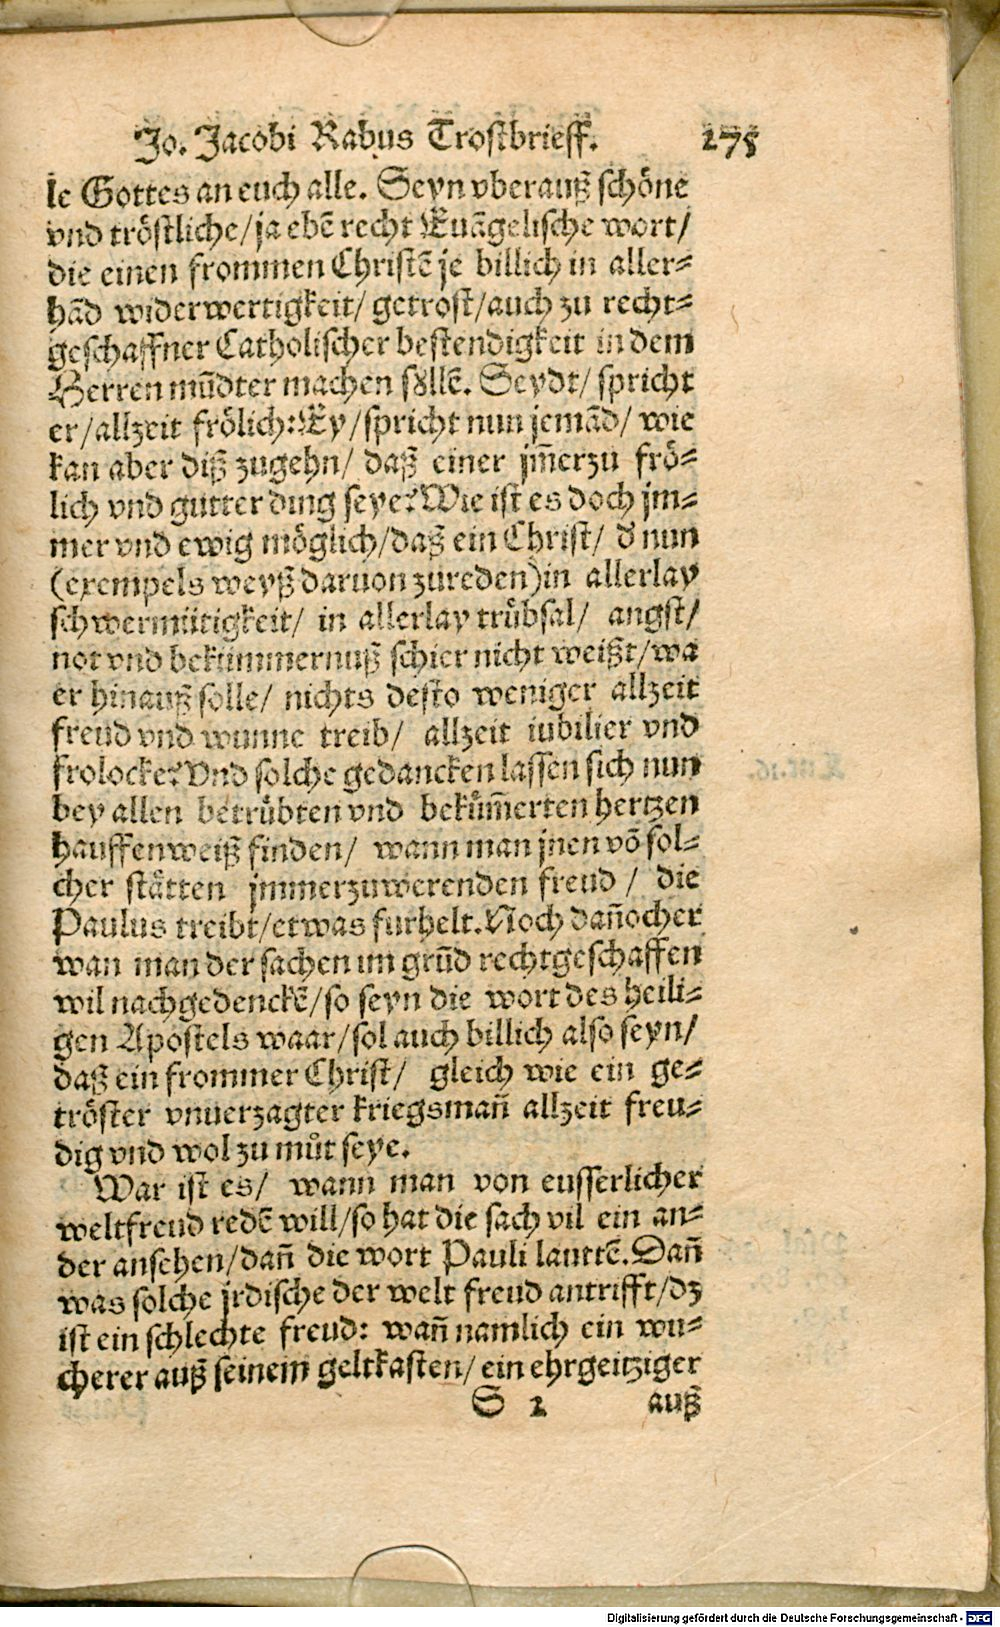 Jo. Jacobi Rabus Trostbrieff. 275
le Gottes an euch alle. Seyn vberauß schöne
vnd tröstliche/ja ebẽ recht Euãgelische wort/
die einen frommen Christẽ je billich in aller⸗
hãd widerwertigkeit/ getrost/auch zu recht⸗
geschaffner Catholischer bestendigkeit in dem
Herren mũdter machen söllẽ. Seydt/ spricht
er/allzeit frölich: Ey/spricht nun jemãd/ wie
kan aber diß zugehn/ daß einer jm̃erzu frö⸗
lich vnd gutter ding seye? Wie ist es doch jm⸗
mer vnd ewig möglich/daß ein Christ/ d̕ nun
(exempels weyß daruon zureden) in allerlay
schwermütigkeit/ in allerlay trübsal/ angst/
not vnd bekümmernuß schier nicht weißt/wa
er hinauß solle/ nichts desto weniger allzeit
freud vnd wunne treib/ allzeit iubilier vnd
frolocke? Vnd solche gedancken lassen sich nun
bey allen betrübten vnd bekům̃erten hertzen
hauffenweiß finden/ wann man jnen võ sol⸗
cher stätten jmmerzuwerenden freud / die
Paulus treibt/etwas furhelt. Noch dañocher
wan man der sachen im grũd rechtgeschaffen
wil nachgedenckẽ/so seyn die wort des heili⸗
gen Apostels waar/sol auch billich also seyn/
daß ein frommer Christ/ gleich wie ein ge⸗
tröster vnuerzagter kriegsmañ allzeit freu⸗
dig vnd wol zu můt seye.
War ist es/ wann man von eusserlicher
weltfreud redẽ will/so hat die sach vil ein an⸗
der ansehen/dañ die wort Pauli lauttẽ. Dañ
was solche jrdische der welt freud antrifft/dz
ist ein schlechte freud: wañ namlich ein wu⸗
cherer auß seinem geltkasten/ ein ehrgeitziger
S 2 auß
Digitalisierung gefördert durch die Deutsche Forschungsgemeinschaft - DFG